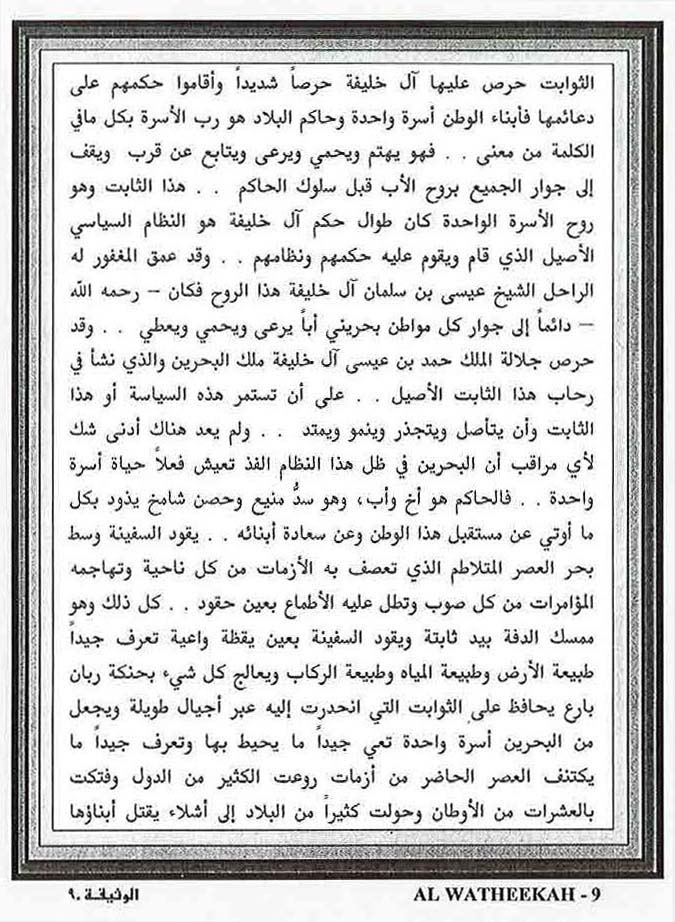 الثوابت حرص عليها آل خليفة حرصاً شديداً وأقاموا حكمهم على
دعائمها فأبناء الوطن أسرة واحدة وحاكم البلاد هو رب الأسرة بكل مافي
الكلمة من معنى . . فهو يهتم ويحمي ويرعى ويتابع عن قرب ويقف
إلى جوار الجميع بروح الأب قبل سلوك الحاكم . . هذا الثابت وهو
روح الأسرة الواحدة كان طوال حكم آل خليفة هو النظام السياسي
الأصيل الذي قام ويقوم عليه حكمهم ونظامهم . . وقد عمق المغفور له
الراحل الشيخ عيسى بن سلمان آل خليفة هذا الروح فكان – رحمه الله
– دائماً إلى جوار كل مواطن بحريني أباً يرعى ويحمي ويعطي . . وقد
حرص جلالة الملك حمد بن عيسى آل خليفة ملك البحرين والذي نشأ في
رحاب هذا الثابت الأصيل . . على أن تستمر هذه السياسة أو هذا
الثابت وأن يتأصل ويتجذر وينمو ويمتد . . ولم يعد هناك أدنى شك
لأي مراقب أن البحرين في ظل هذا النظام الفذ تعيش فعلاً حياة أسرة
واحدة . . فالحاكم هو أخ وأب، وهو سدُّ منيع وحصن شامخ يذود بكل
ما أوتي عن مستقبل هذا الوطن وعن سعادة أبنائه . . يقود السفينة وسط
بحر العصر المتلاطم الذي تعصف به الأزمات من كل ناحية وتهاجمه
المؤامرات من كل صوب وتطل عليه الأطماع بعين حقود . . كل ذلك وهو
ممسك الدفة بيد ثابتة ويقود السفينة بعين يقظة واعية تعرف جيداً
طبيعة الأرض وطبيعة المياه وطبيعة الركاب ويعالج كل شيء بحنكة ربان
بارع يحافظ على الثوابت التي انحدرت إليه عبر أجيال طويلة ويجعل
من البحرين أسرة واحدة تعي جيداً ما يحيط بها وتعرف جيداً ما
يكتنف العصر الحاضر من أزمات روعت الكثير من الدول وفتكت
بالعشرات من الأوطان وحولت كثيراً من البلاد إلى أشلاء يقتل أبناؤها
الوثيقة ٩٠
AL WATHEEKAH - 9